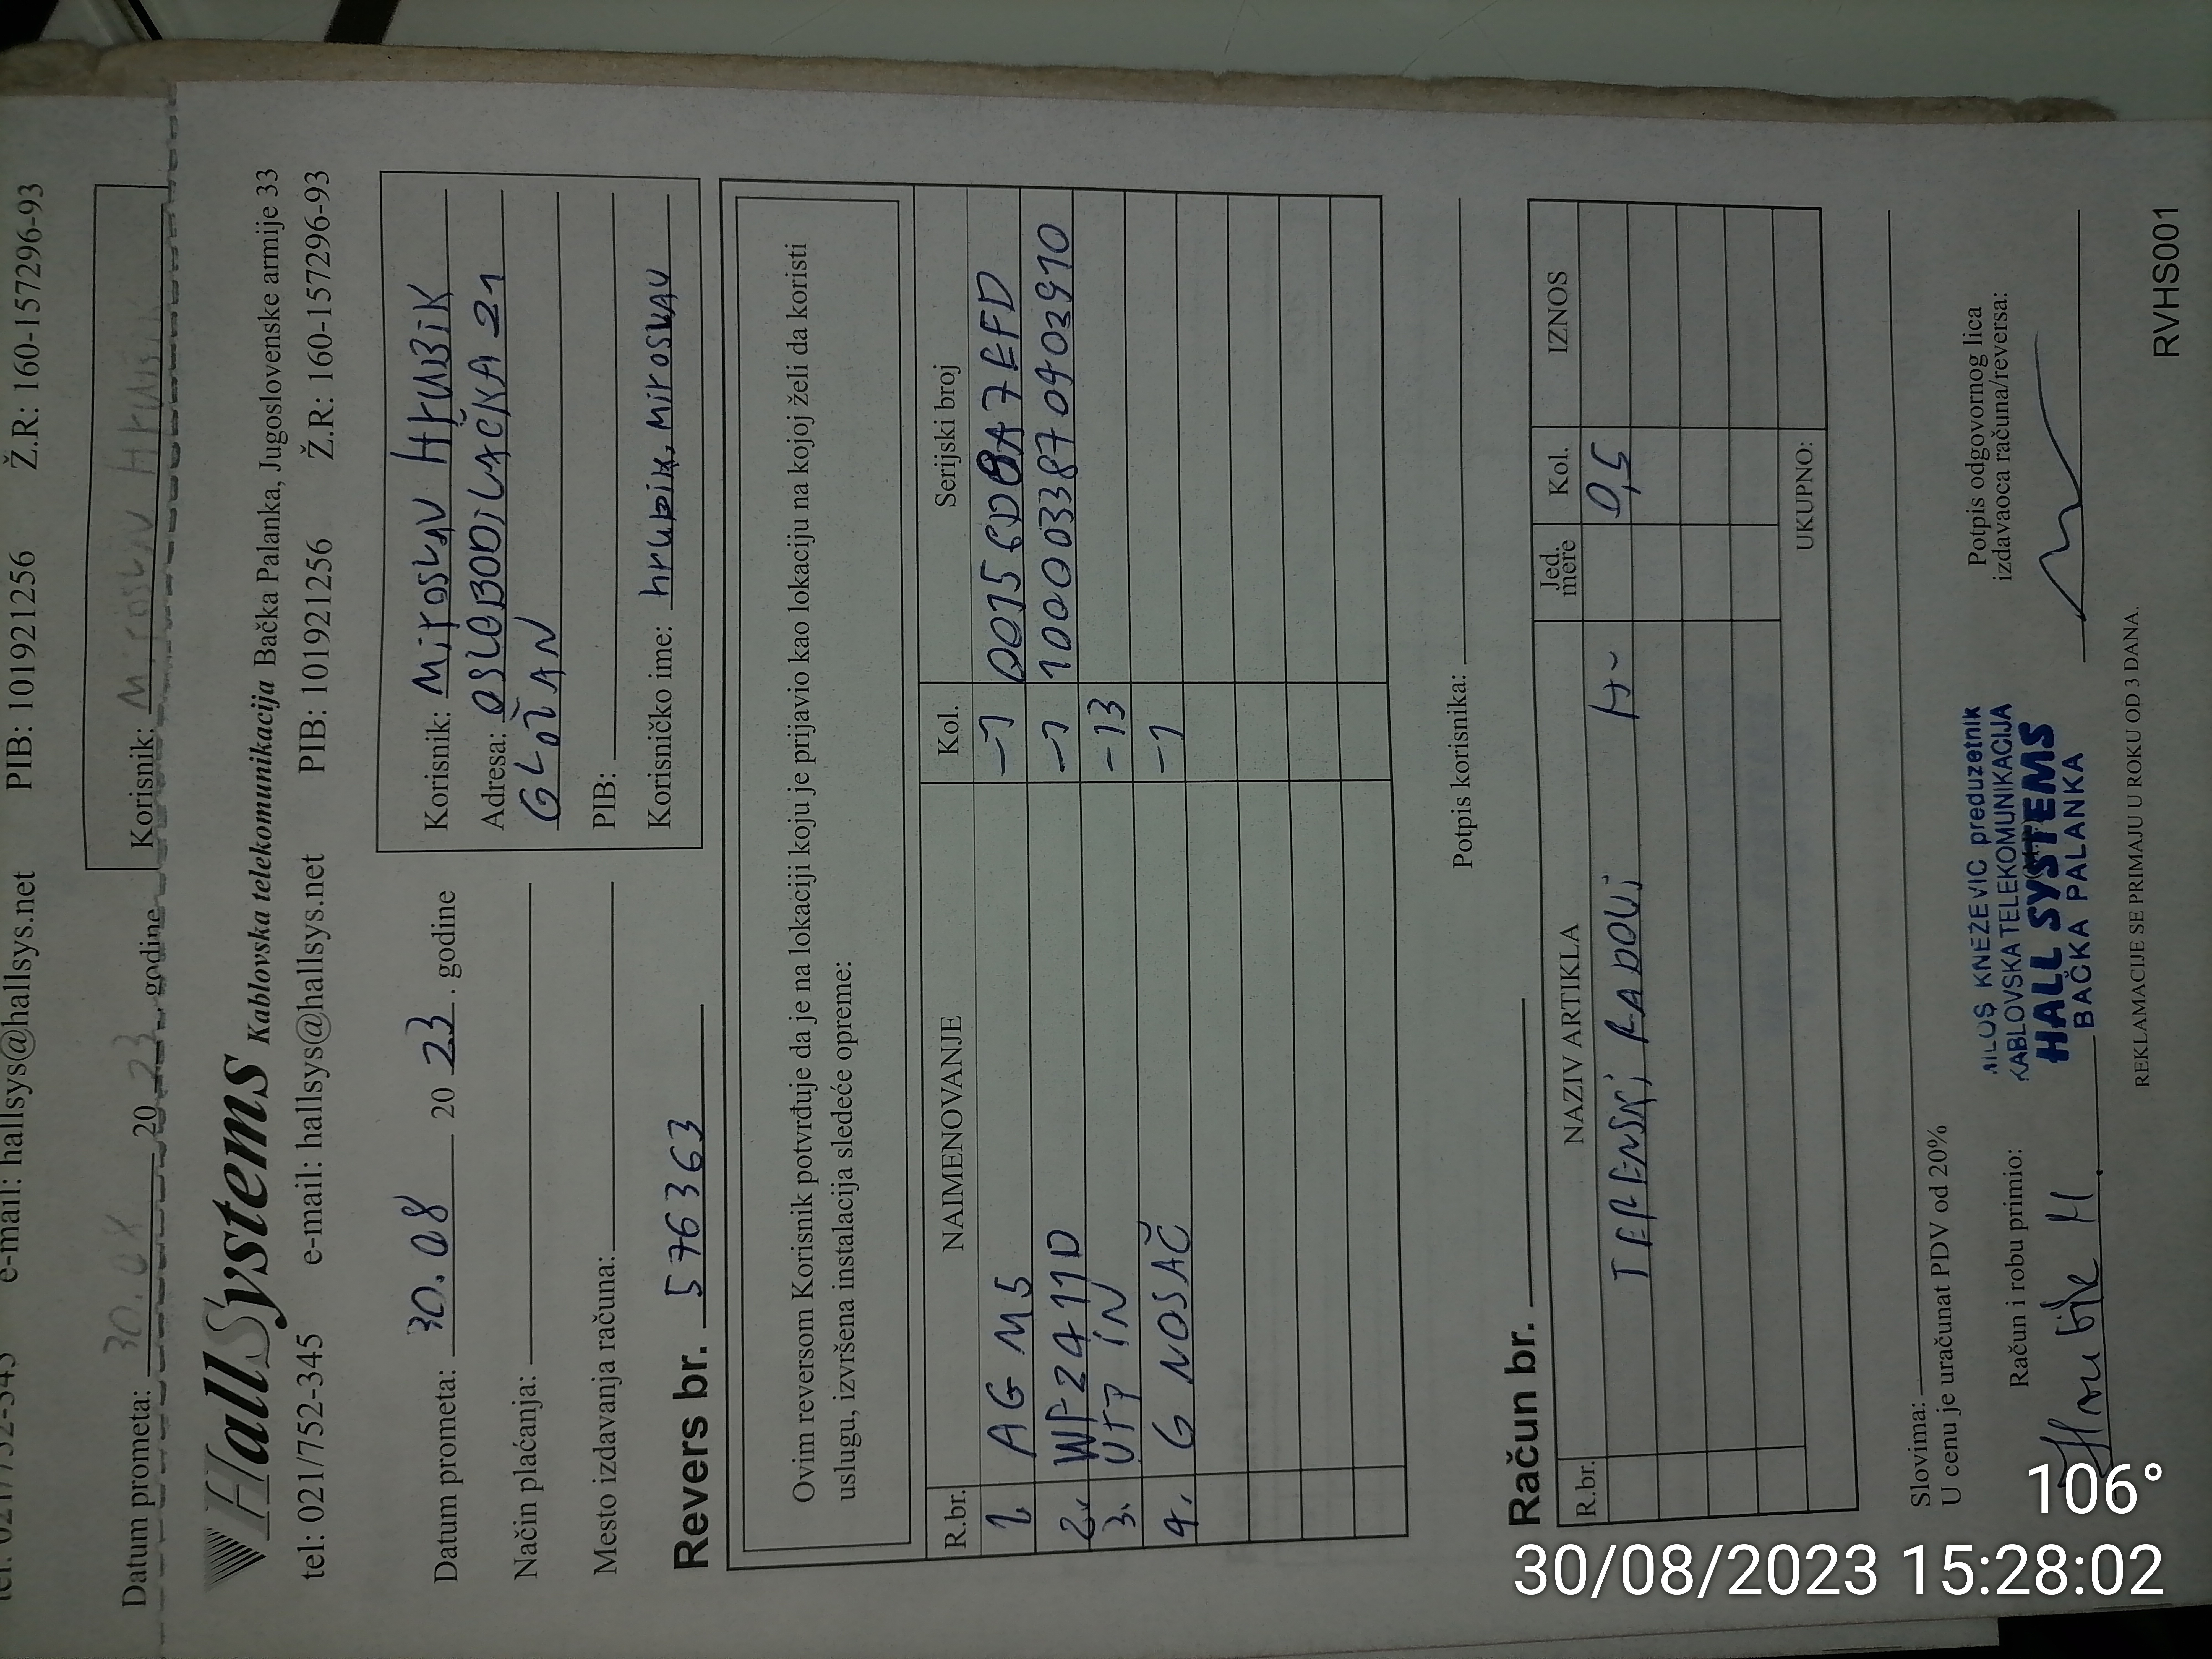 tel: 021/752-345 e-mail: hallsys@hallsys.net PIB: 101921256 Ž.R: 160-157296-93
Datum prometa: 30.08 20 23. godine
Korisnik: Miroslav Hrubik
HallSystems Kablovska telekomunikacija Bačka Palanka, Jugoslovenske armije 33
tel: 021/752-345 e-mail: hallsys@hallsys.net PIB: 101921256 Ž.R: 160-157296-93
Datum prometa: 30.08 20 23. godine
Način plaćanja:
Mesto izdavanja računa:
Korisnik: Miroslav Hrubik
Adresa: OSLOBODILAČKA 21
GLOŽAN
PIB:
Korisničko ime: hrubik.miroslav
Revers br. 576363
Ovim reversom Korisnik potvrđuje da je na lokaciji koju je prijavio kao lokaciju na kojoj želi da koristi
uslugu, izvršena instalacija sledeće opreme:
R.br. NAIMENOVANJE Kol. Serijski broj
1. AG M5 -1 00156D8A7EFD
2. WF2411D -1 1000033870903910
3. UTP IN -13
4. G NOSAČ -1
Potpis korisnika:
Račun br.
R.br. NAZIV ARTIKLA Jed. mere Kol. IZNOS
TERENSKI RADOVI H- 0,5
UKUPNO:
Slovima:
U cenu je uračunat PDV od 20%
Račun i robu primio:
Hrubik M.
MILOŠ KNEŽEVIĆ preduzetnik
KABLOVSKA TELEKOMUNIKACIJA
HALL SYSTEMS
BAČKA PALANKA
Potpis odgovornog lica
izdavaoca računa/reversa:
REKLAMACIJE SE PRIMAJU U ROKU OD 3 DANA.
RVHS001
106°
30/08/2023 15:28:02